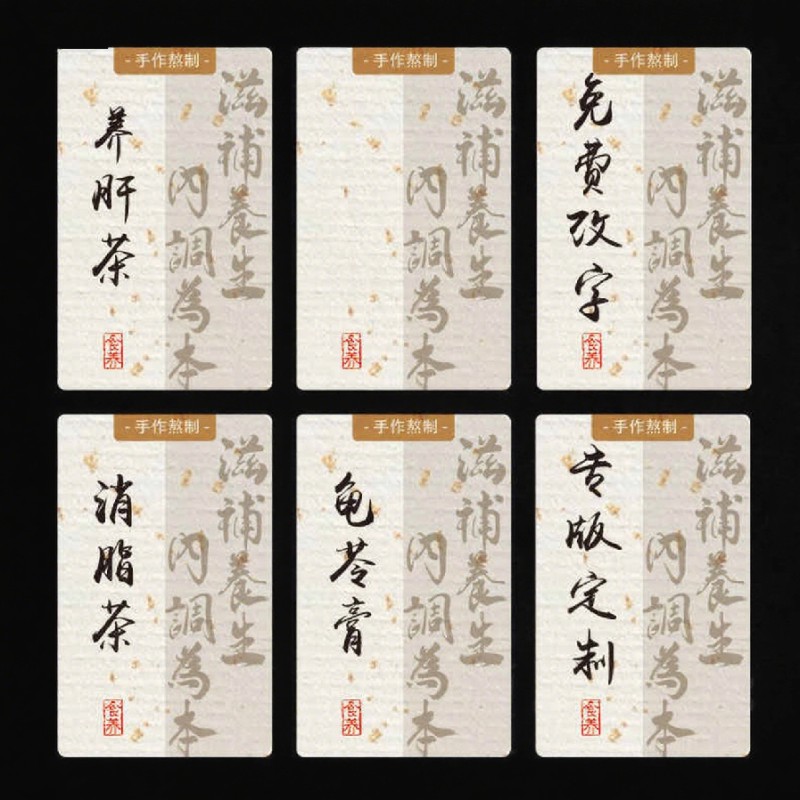 - 手作熬制 -
养肝茶
滋補養生
內調為本
食养
- 手作熬制 -
滋補養生
內調為本
食养
- 手作熬制 -
免费改字
滋補養生
內調為本
食养
- 手作熬制 -
消脂茶
滋補養生
內調為本
食养
- 手作熬制 -
龟苓膏
滋補養生
內調為本
食养
- 手作熬制 -
专版定制
滋補養生
內調為本
食养